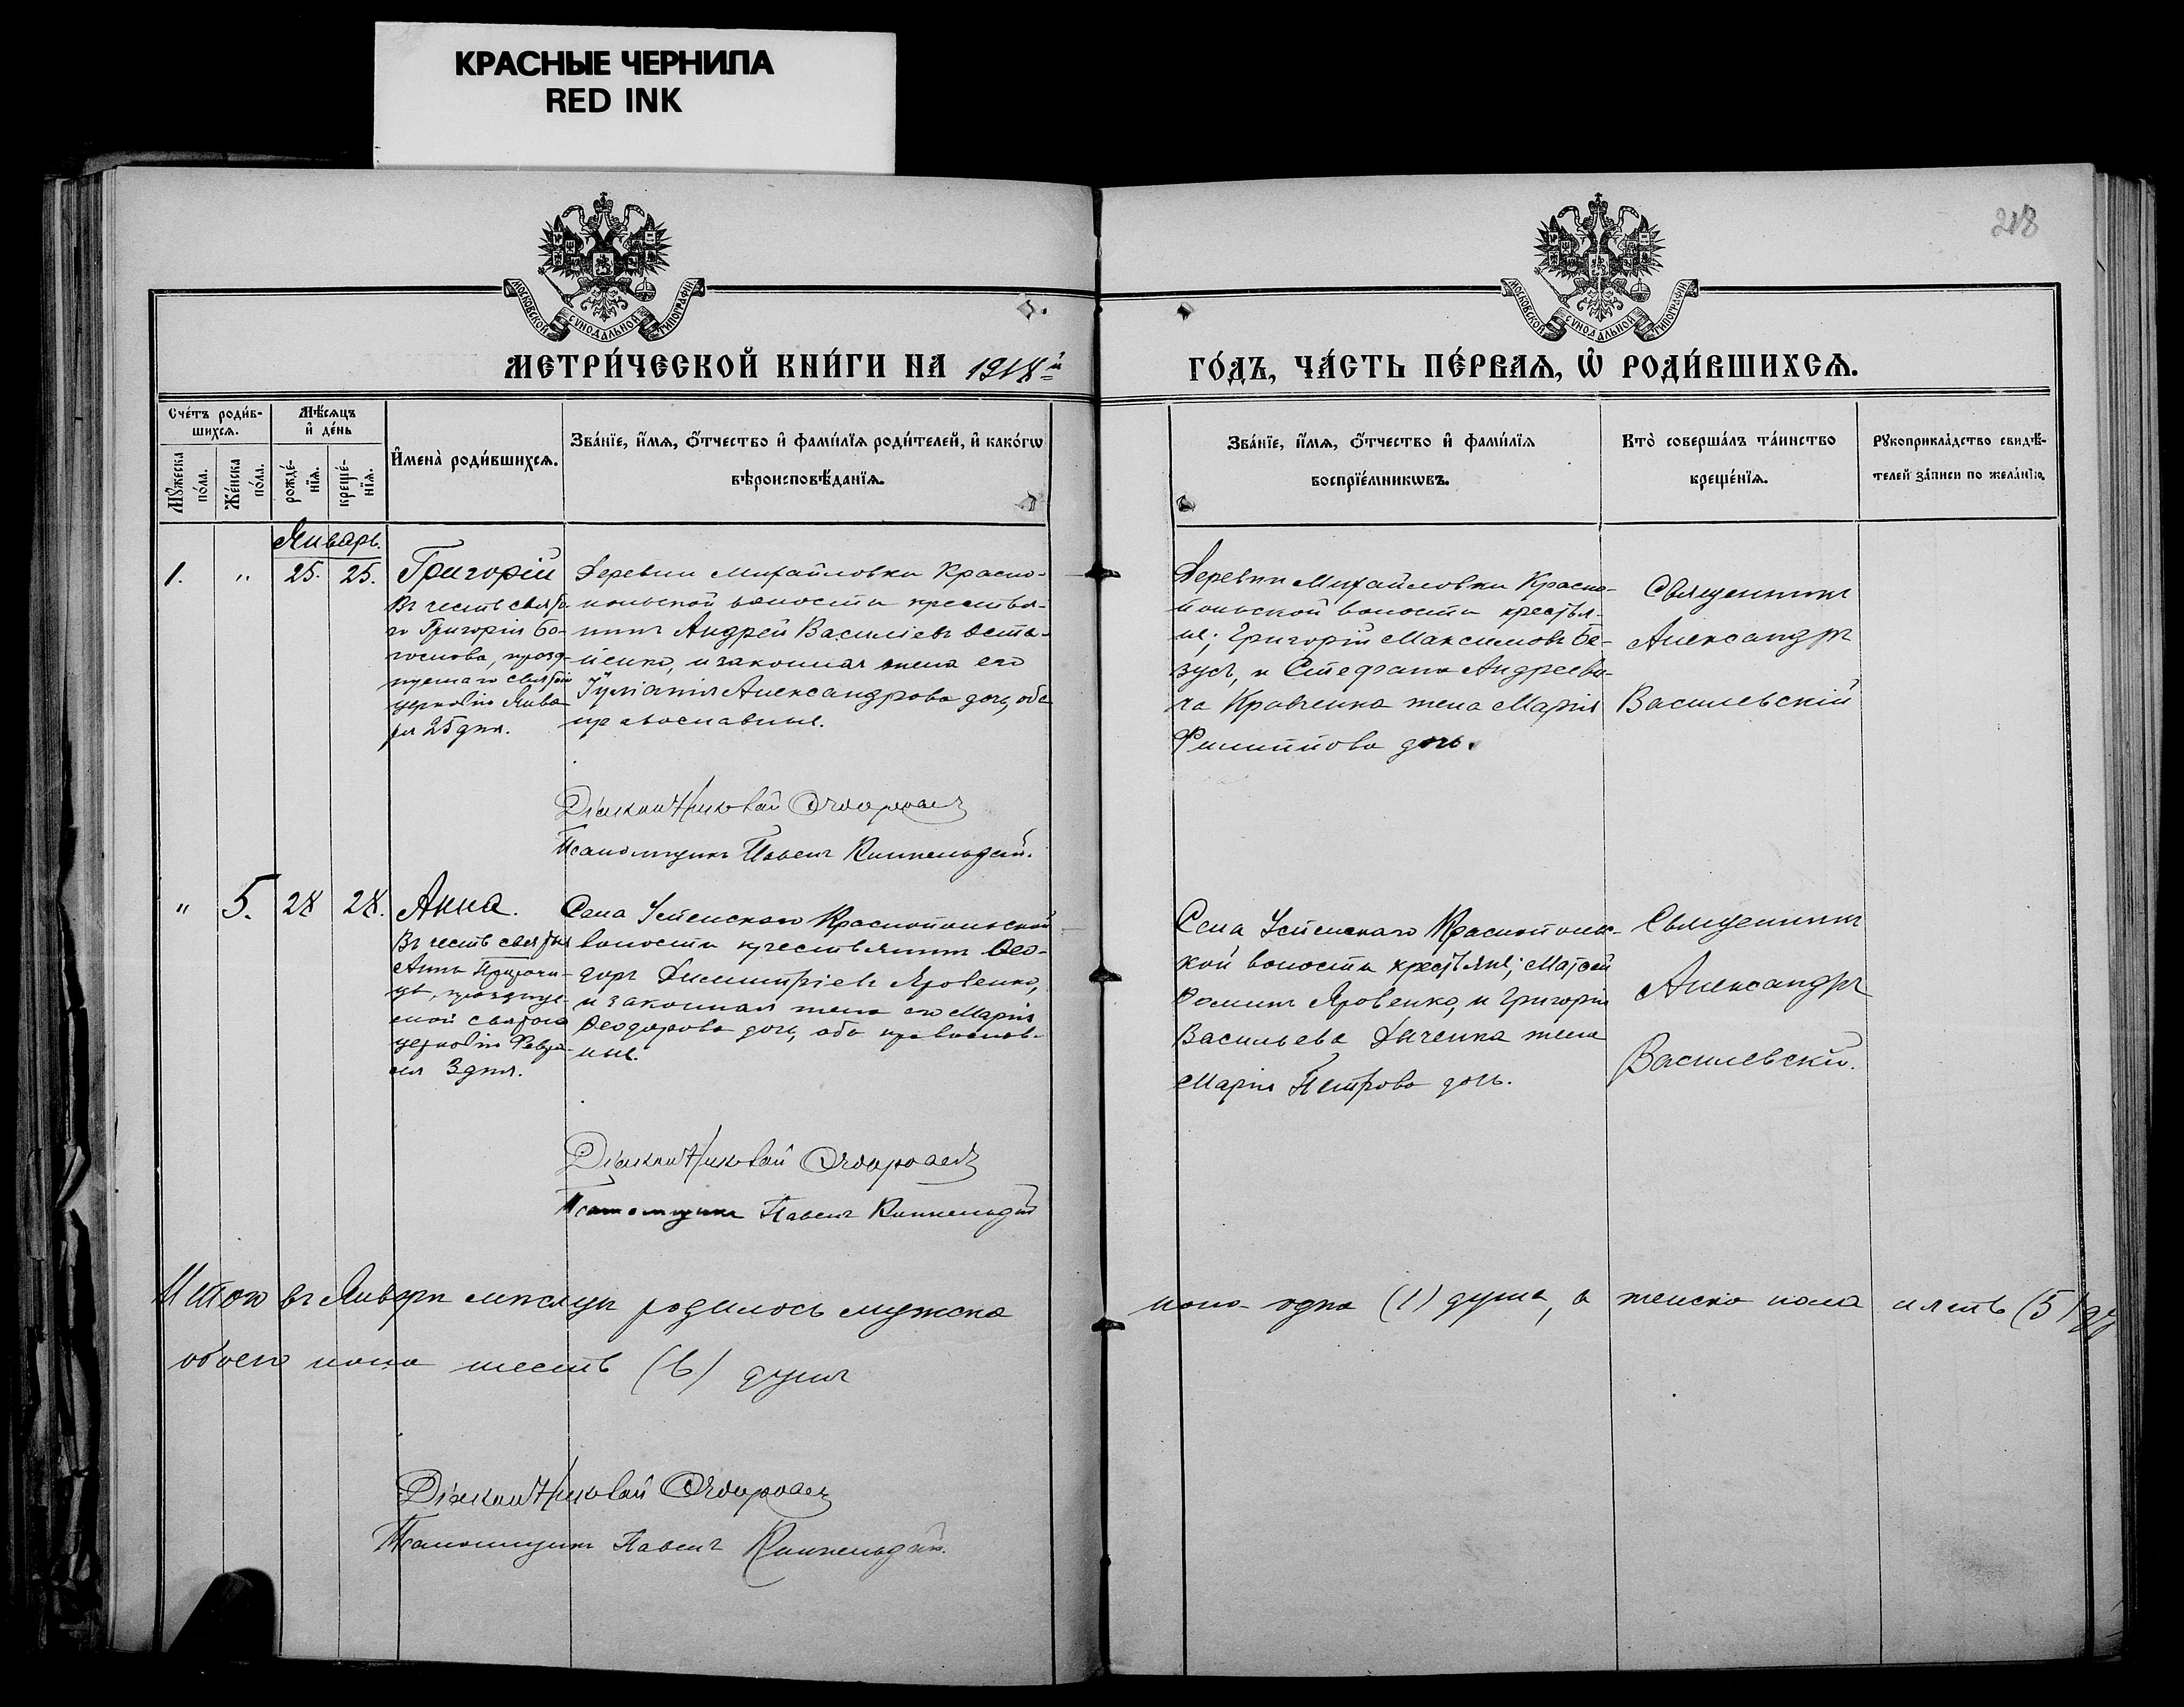 КРАСНЫЕ ЧЕРНИЛА
RED INK
218
МОСКОВСКОЙ СѴНОДАЛЬНОЙ ТИПОГРАФІИ
МОСКОВСКОЙ СѴНОДАЛЬНОЙ ТИПОГРАФІИ
МЕТРИ́ЧЕСКОЙ КНИ́ГИ НА 1918й
ГО́ДЪ, ЧА́СТЬ ПЕ́РВАѦ, Ѽ РОДИ́ВШИХСѦ.
Сче́тъ роди́в-
шихсѧ.
Мѣ́сѧцъ
и҆ де́нь
И҆мена̀ роди́вшихсѧ.
Зва́нїе, и҆́мѧ, ѻ҆́тчество и҆ фами́лїѧ роди́телей, и҆ како́гѡ
вѣроисповѣ́данїѧ.
Мꙋ́жеска по́ла.
Же́нска по́ла.
рожде́-
нїѧ.
креще́-
нїѧ.
Зва́нїе, и҆́мѧ, ѻ҆́тчество и҆ фами́лїѧ
воспрїе́мникѡвъ.
Кто̀ соверша́лъ та́инство
креще́нїѧ.
Рꙋкоприкла́дство свидѣ́-
телей за́писи по жела́нїю.
Январь.
1. " 25. 25. Григорій
Въ честь свято-
го Григорія Бо-
гослова, празд-
нуемаго святою
церковію Янва-
ря 25 дня.
Деревни Михайловки Красно-
польской волости крестья-
нинъ Андрей Василіевъ Оста-
пенко, и законная жена его
Іуліанія Александрова дочь, оба
православные.
Діаконъ Николай
Псаломщикъ Павелъ
Деревни Михайловки Красно-
польской волости крестья-
не; Григорій Максимовъ Бе-
зусъ, и Стефана Андреева-
ча Кравченка жена Марія
Филиппова дочь.
Священникъ
Александръ
Василевскій
" 5. 28 28. Анна.
Въ честь святыя
Анны Пророчи-
цы, празднуе-
мой святою
церковію Февра-
ля 3 дня.
Села Успенскаго Краснопольской
волости крестьянинъ Ѳео-
доръ Димитріевъ Яровенко,
и законная жена его Марія
Ѳеодорова дочь, оба православ-
ные.
Діаконъ Николай
Псаломщикъ Павелъ
Села Успенскаго Краснополь-
кой волости крестьяне; Матѳей
Ѳоминъ Яровенко, и Григорія
Васильева Дяченка жена
Марія Петрова дочь.
Священникъ
Александръ
Василевскій.
Итого въ Январѣ мѣсяцѣ родилось мужска
пола одна (1) душа, а женска пола пять (5) ду
обоего пола шесть (6) душъ
Діаконъ Николай
Псаломщикъ Павелъ